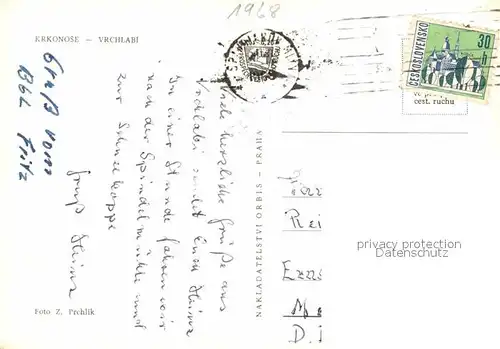 1968
KRKONOŠE – VRCHLABÍ
ČESKOSLOVENSKO
30
h
cest. ruchu
Gruß vom
Bbl Fritz
Viele herzliche Grüße aus
Vrchlabi sendet Euch Heinz
In einer Stunde fahren wir
nach der Spindelmühle und
zur Schneekoppe
Gruß Heinz
NAKLADATELSTVÍ ORBIS – PRAHA
Rei
M
D.
privacy protection
Datenschutz
Foto Z. Prchlík